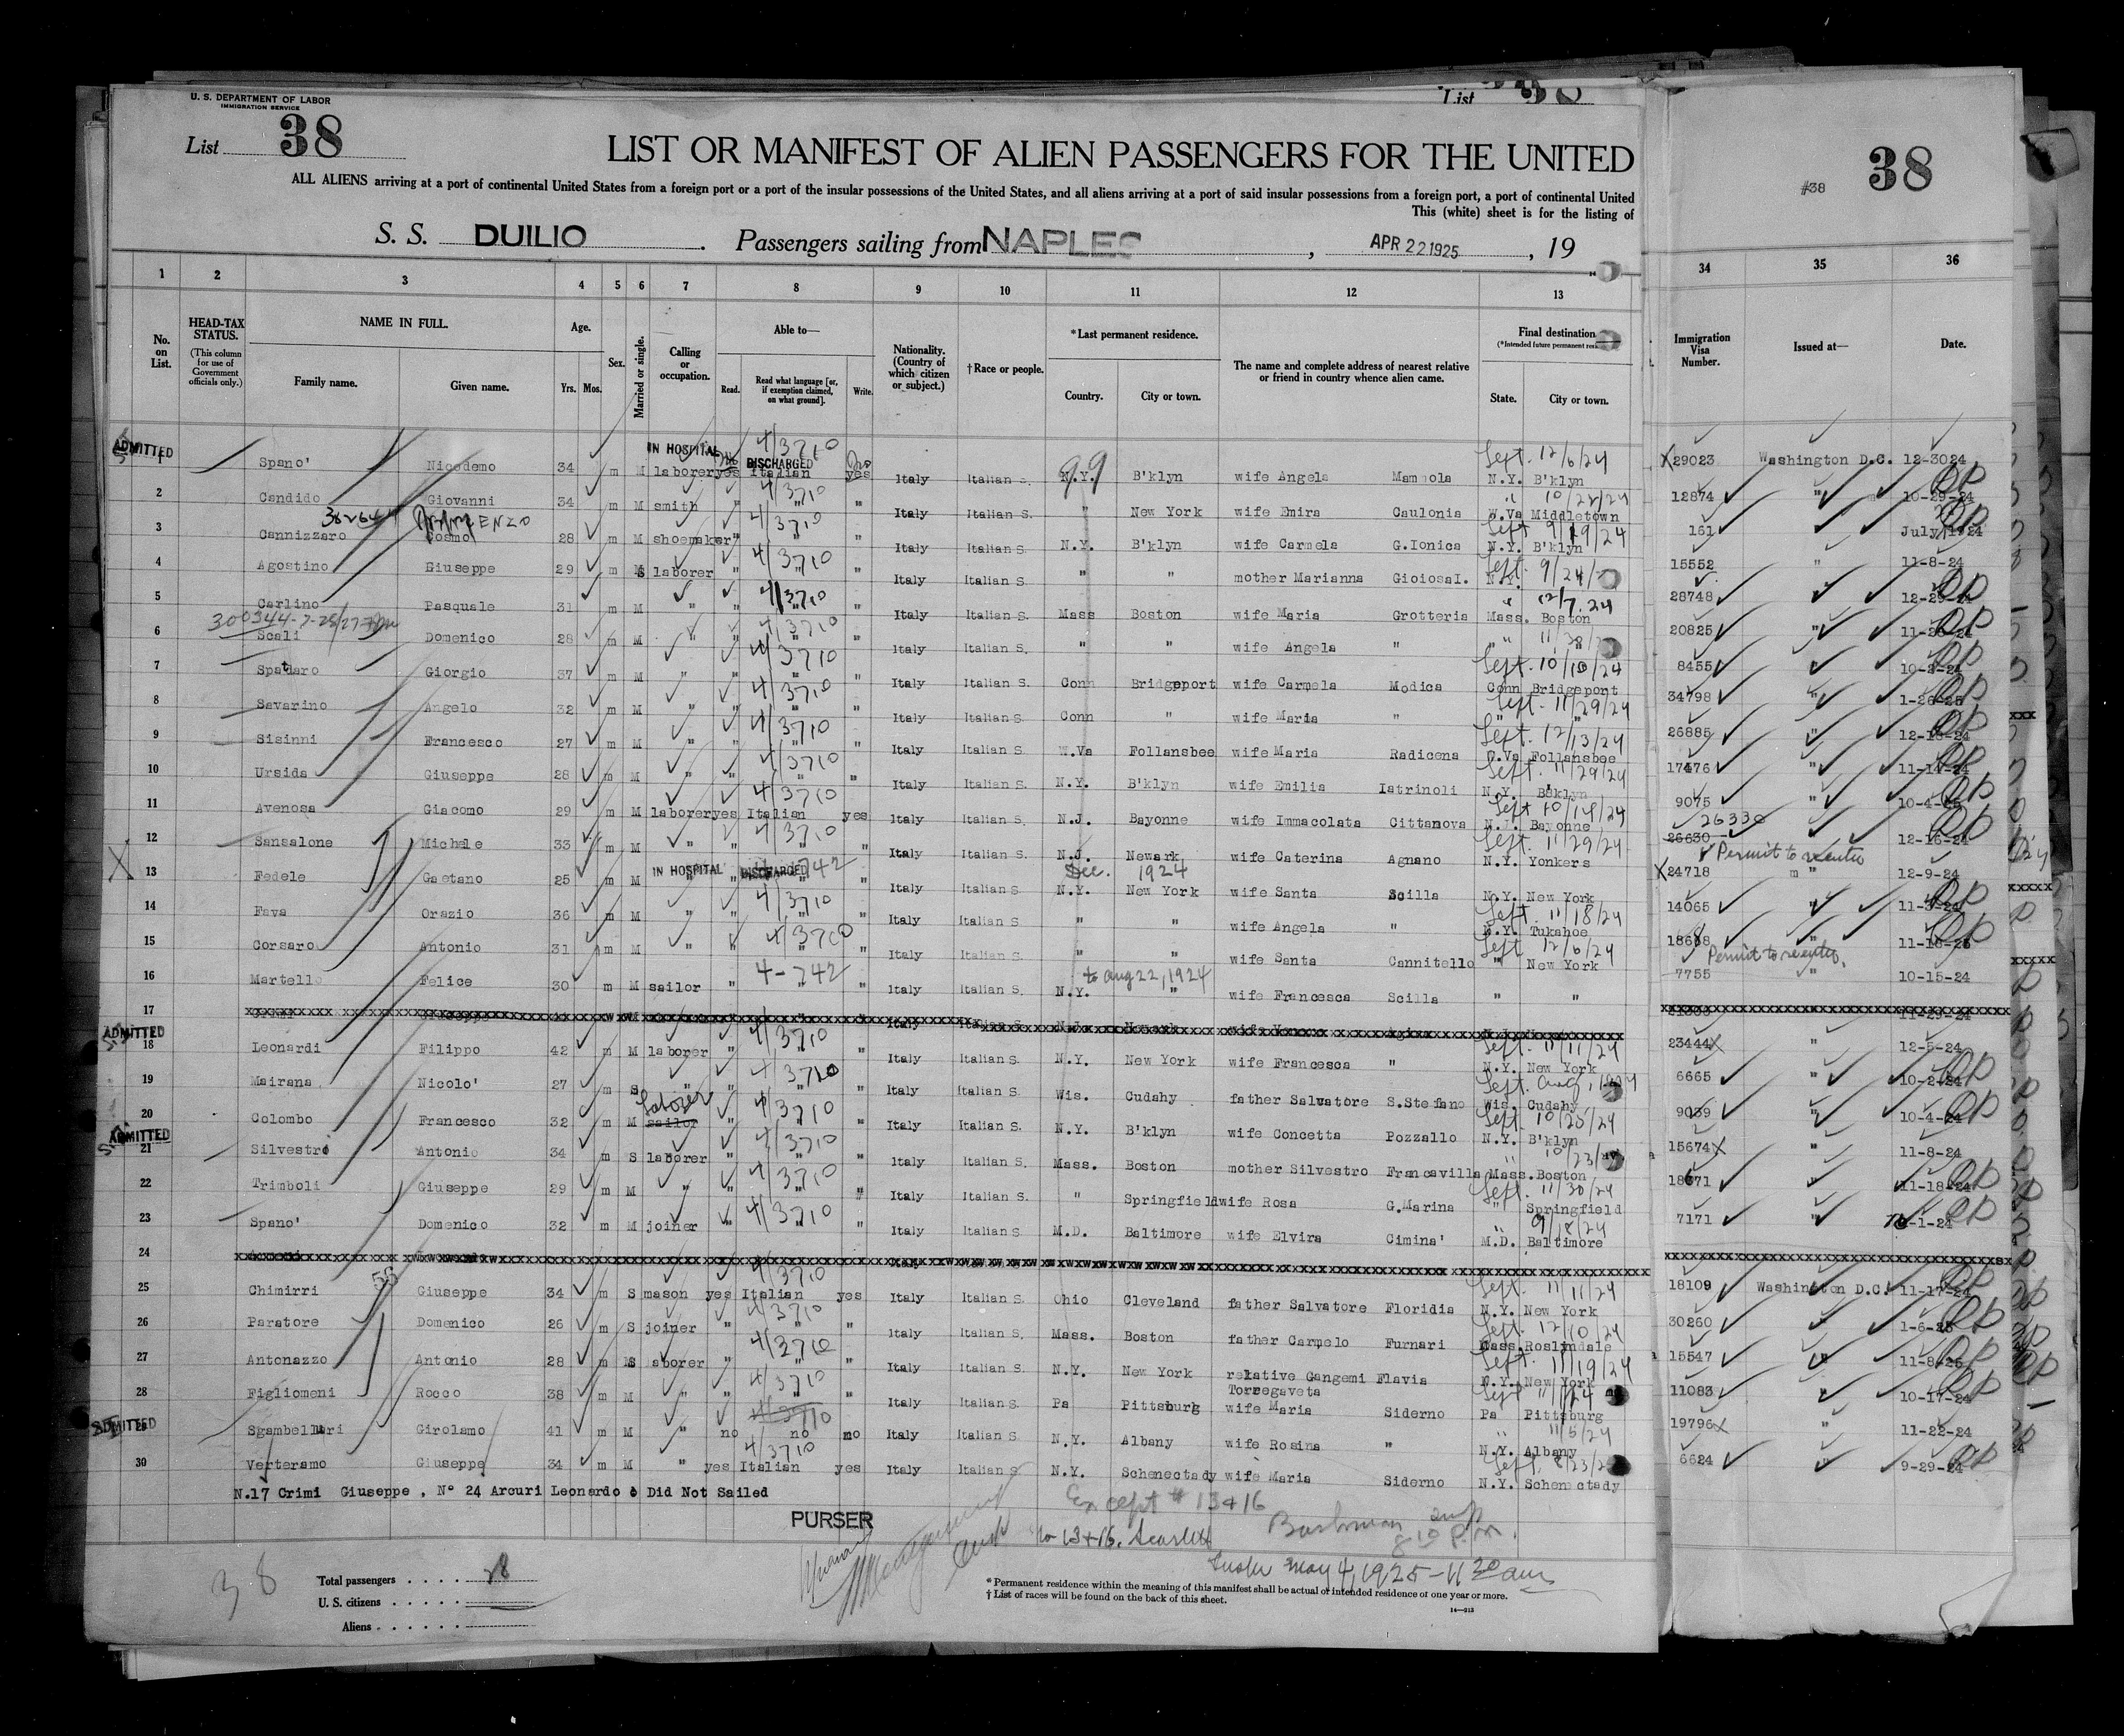 U. S. DEPARTMENT OF LABOR
IMMIGRATION SERVICE
List 38
List 38
LIST OR MANIFEST OF ALIEN PASSENGERS FOR THE UNITED
#38 38
ALL ALIENS arriving at a port of continental United States from a foreign port or a port of the insular possessions of the United States, and all aliens arriving at a port of said insular possessions from a foreign port, a port of continental United
This (white) sheet is for the listing of
S. S. DUILIO. Passengers sailing from NAPLES, APR 22 1925, 19
1 2 3 4 5 6 7 8 9 10 11 12 13 34 35 36
No. on List.
HEAD-TAX STATUS.
(This column for use of Government officials only.)
NAME IN FULL.
Family name. Given name.
Age.
Yrs. Mos.
Sex.
Married or single.
Calling or occupation.
Able to—
Read. Read what language [or, if exemption claimed, on what ground]. Write.
Nationality. (Country of which citizen or subject.)
†Race or people.
*Last permanent residence.
Country. City or town.
The name and complete address of nearest relative or friend in country whence alien came.
Final destination
(*Intended future permanent
State. City or town.
Immigration Visa Number.
Issued at—
Date.
ADMITTED IN HOSPITAL DISCHARGED 4/3710 Sept. 12/6/24
1 Spano' Nicodemo 34 m M laborer yes Italian yes Italy Italian S. N.Y. B'klyn wife Angela Mammola N.Y. B'klyn 29023 Washington D.C. 12-3024
4/3710 " 10/22/24
2 Candido Giovanni 34 m M smith " " " Italy Italian S. " New York wife Emira Caulonia W.Va Middletown 12874 " 10-29-24
ENZO 4/3710 Sept 9/19/24
3 Cannizzaro Cosmo 28 m M shoemaker " " " Italy Italian S. N.Y. B'klyn wife Carmela G.Ionica N.Y. B'klyn 161 " July 1924
4/3710 Sept. 9/24/
4 Agostino Giuseppe 29 m S laborer " " " Italy Italian S. " " mother Marianna GioiosaI. N.Y. 15552 " 11-8-24
4/3710 " 12/7.24
5 Carlino Pasquale 31 m M " " " " Italy Italian S. Mass Boston wife Maria Grotteria Mass. Boston 28748 " 12-29-24
300344-7-25/27 4/3710
6 Scali Domenico 28 m M " " " " Italy Italian S. " " wife Angela " " " 20825 " 11-26-24
4/3710 Sept. 10/10/24
7 Spataro Giorgio 37 m M " " " " Italy Italian S. Conn Bridgeport wife Carmela Modica Conn Bridgeport 8455 " 10-2-24
4/3710 Sept. 11/29/24
8 Savarino Angelo 32 m M " " " " Italy Italian S. Conn " wife Maria " " " 34798 " 1-26-25
4/3710 Sept. 12/13/24
9 Sisinni Francesco 27 m M " " " " Italy Italian S. W.Va Follansbee wife Maria Radicena W.Va Follansbee 26885 " 12-18-24
4/3710 Sept. 11/29/24
10 Ursida Giuseppe 28 m M " " " " Italy Italian S. N.Y. B'klyn wife Emilia Iatrinoli N.Y. B'klyn 17476 " 11-14-24
4/3710 Sept 10/14/24
11 Avenosa Giacomo 29 m M laborer yes Italian yes Italy Italian S. N.J. Bayonne wife Immacolata Cittanova N.Y. Bayonne 9075 " 10-4-25
4/3710 Sept. 11/29/24 26330
12 Sansalone Michele 33 m M " " " " Italy Italian S. N.J. Newark wife Caterina Agnano N.Y. Yonkers 26630 " 12-16-24
IN HOSPITAL DISCHARGED 742 Dec. 1924 Permit to reenter
13 Fedele Gaetano 25 m M " " " " Italy Italian S. N.Y. New York wife Santa Scilla N.Y. New York 24718 " 12-9-24
4/3710 Sept. 11/18/24
14 Fava Orazio 36 m M " " " " Italy Italian S " " wife Angela " N.Y. Tukahoe 14065 " 11-3-24
4/3710 Sept 12/6/24
15 Corsaro Antonio 31 m M " " " " Italy Italian S. " " wife Santa Cannitello " New York 18668 " 11-18-25
4-742 to Aug 22, 1924 Permit to reenter.
16 Martello Felice 30 m M sailor " " " Italy Italian S. N.Y. " wife Francesca Scilla " " 7755 " 10-15-24
17
ADMITTED 4/3710 Sept. 11/11/24
18 Leonardi Filippo 42 m M laborer " " " Italy Italian S. N.Y. New York wife Francesca " N.Y. New York 23444 " 12-5-24
4/3710 Sept. Aug, 1924
19 Mairana Nicolo' 27 m S " " " " Italy Italian S. Wis. Cudahy father Salvatore S.Stefano Wis. Cudahy 6665 " 10-2-24
laborer 4/3710 Sept. 10/25/24
20 Colombo Francesco 32 m M sailor " " " Italy Italian S. N.Y. B'klyn wife Concetta Pozzallo N.Y. B'klyn 9039 " 10-4-24
ADMITTED 4/3710 " 10/23/
21 Silvestri Antonio 34 m S laborer " " " Italy Italian S. Mass. Boston mother Silvestro Francavilla Mass. Boston 15674 " 11-8-24
4/3710 Sept. 11/30/24
22 Trimboli Giuseppe 29 m M " " " " Italy Italian S. " Springfield wife Rosa G.Marina " Springfield 18671 " 11-18-24
4/3710 " 9/18/24
23 Spano' Domenico 32 m M joiner " " " Italy Italian S. M.D. Baltimore wife Elvira Cimina' M.D. Baltimore 7171 " 10-1-24
24
4/3710 Sept. 11/11/24
25 Chimirri Giuseppe 34 m S mason yes Italian yes Italy Italian S. Ohio Cleveland father Salvatore Floridia N.Y. New York 18109 Washington D.C. 11-17-24
4/3710 Sept. 12/10/24
26 Paratore Domenico 26 m S joiner " " " Italy Italian S. Mass. Boston father Carmelo Furnari Mass. Roslindale 30260 " 1-6-25
4/3710 Sept. 11/19/24
27 Antonazzo Antonio 28 m S laborer " " " Italy Italian S. N.Y. New York relative Gangemi Flavia N.Y. New York 15547 " 11-8-25
Torregaveta
4/3710
28 Figliomeni Rocco 38 m M " " " " Italy Italian S. Pa Pittsburg wife Maria Siderno Pa Pittsburg 11083 " 10-17-24
ADMITTED 4/3710 " 11/5/24
Sgambelluri Girolamo 41 m M " no no no Italy Italian S. N.Y. Albany wife Rosina " N.Y. Albany 19796 " 11-22-24
4/3710
30 Verteramo Giuseppe 34 m M " yes Italian yes Italy Italian S N.Y. Schenectady wife Maria Siderno N.Y. Schenectady 6624 " 9-29-24
N.17 Crimi Giuseppe, Nº 24 Arcuri Leonardo Did Not Sailed
Except # 13+16
PURSER
13+16. Scarlett
8 10 P.M.
May 4, 1925-11 30 am
38
Total passengers . . . . 28
U. S. citizens . . . . .
Aliens . . . . . .
* Permanent residence within the meaning of this manifest shall be actual or intended residence of one year or more.
† List of races will be found on the back of this sheet.
14—913